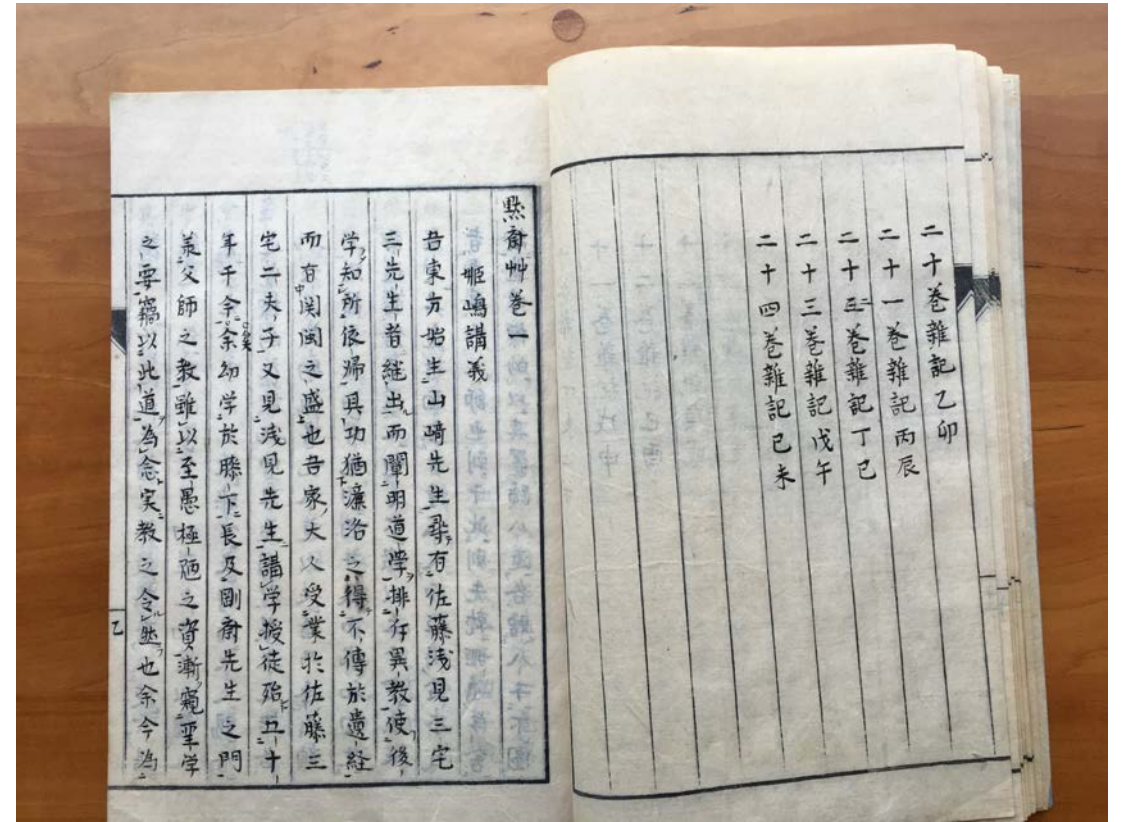 二十卷雜記乙卯
二十一卷雜記丙辰
二十二卷雜記丁巳
二十三卷雜記戊午
二十四卷雜記己未
黙齋艸卷一
姫嶋講義
吾東方始生山﨑先生尋有佐藤浅見三宅
三先生者継出而闡明道学排斥異教使後
学知所依帰其功猶濂洛之得不傳於遺経
而有関閩之盛也吾家大人受業於佐藤三
宅二夫子又見浅見先生講学授徒殆五十
年于今矣余幼学於膝下長及剛齋先生之門
蒙父師之教雖以至愚極陋之資漸窺聖学
之要竊以此道為念実教之令然也余今為
乙